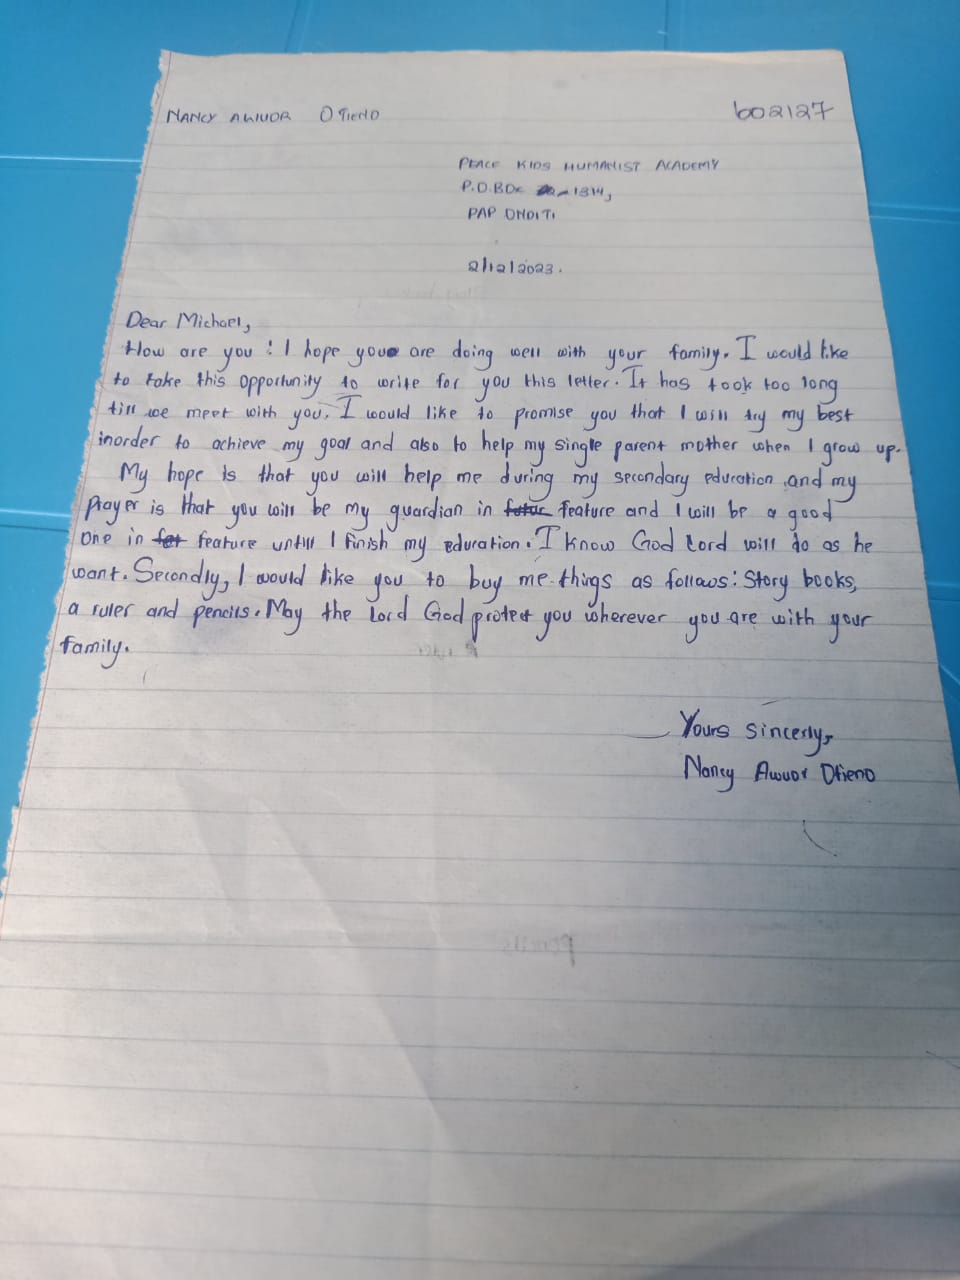 NANCY AWUOR OTIENO
602127
PEACE KIDS HUMANIST ACADEMY
P.O.BOX - 1314,
PAP ONDITI
2/12/2023.
Dear Michael,
How are you! I hope you are doing well with your family. I would like
to take this opportunity to write for you this letter. It has took too long
till we meet with you. I would like to promise you that I will try my best
inorder to achieve my goal and also to help my single parent mother when I grow up.
My hope is that you will help me during my secondary education and my
prayer is that you will be my guardian in futur feature and I will be a good
one in fet feature untill I finish my education. I know God Lord will do as he
want. Secondly, I would like you to buy me things as follows: Story books,
a ruler and pencils. May the Lord God protect you wherever you are with your
family.
Yours sincerly,
Nancy Awuor Otieno